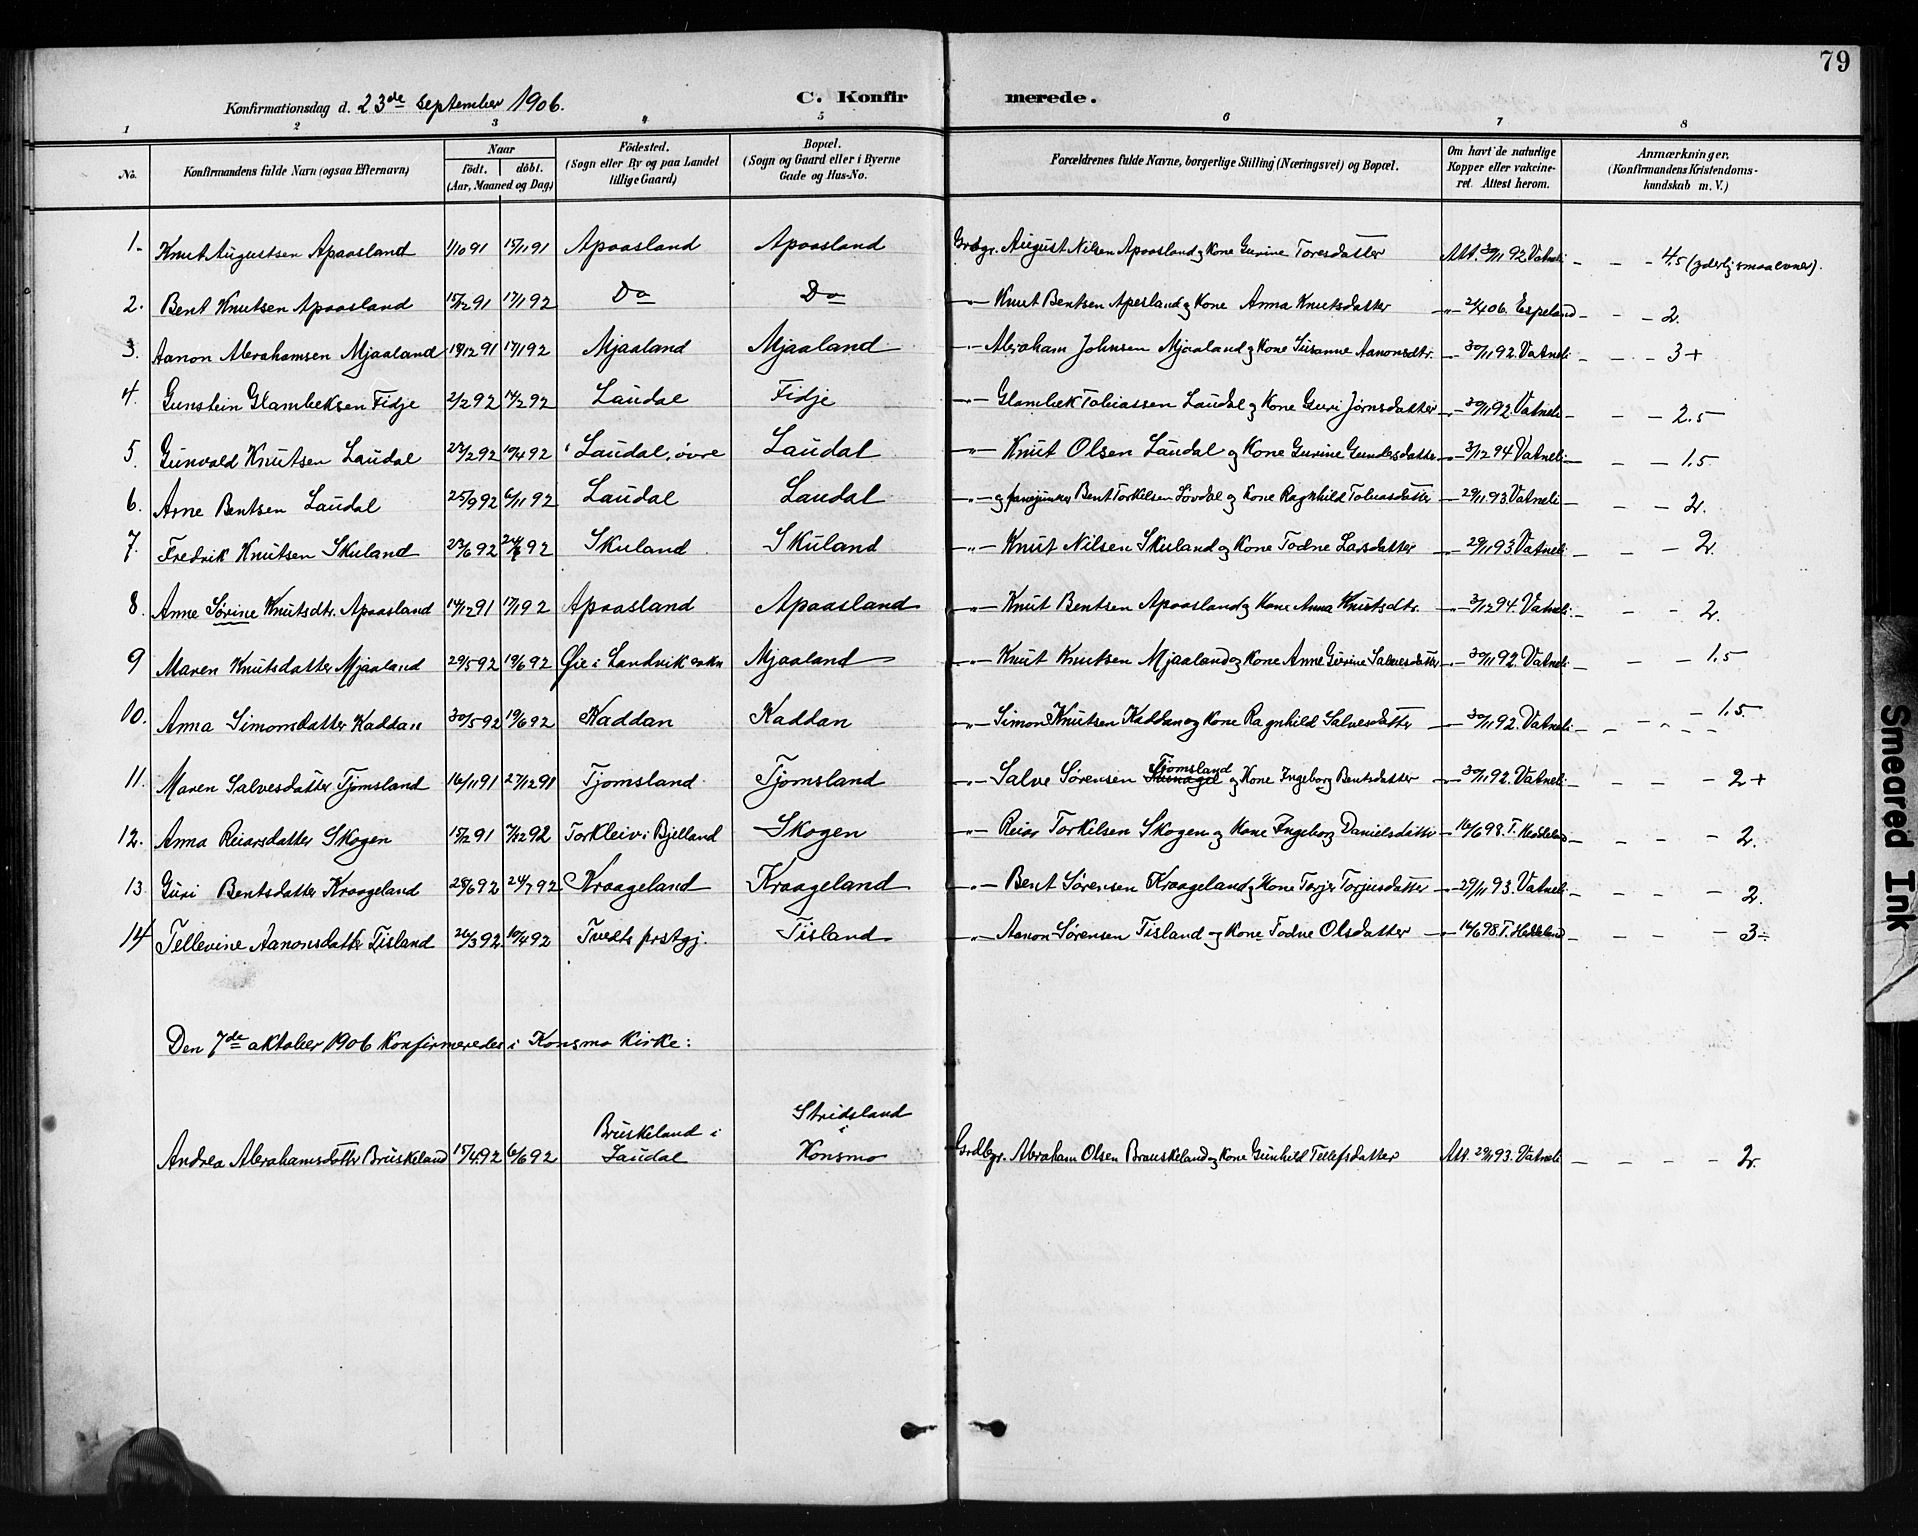 79
Konfirmationsdag d. 23de september 1906. C. Konfirmerede.
1 2 3 4 5 6 7 8
No. Konfirmandens fulde Navn (ogsaa Efternavn) Naar födt. döbt. (Aar, Maaned og Dag) Födested. (Sogn eller By og paa Landet tillige Gaard) Bopæl. (Sogn og Gaard eller i Byerne Gade og Hus-No. Forældrenes fulde Navne, borgerlige Stilling (Næringsvei) og Bopæl. Om havt de naturlige Kopper eller vakcineret. Attest herom. Anmærkninger. (Konfirmandens Kristendomskundskab m. V.)
1. Knut Augustsen Apaasland 1/10 91 15/11 91 Apaasland Apaasland Grdbgr. August Nilsen Apaasland og Kone Gurine Toresdatter Att. 30/11 92 Vatneli - - - 4,5 (yderlig smaa evner).
2. Bent Knutsen Apaasland 15/12 91 17/1 92 Do Do -„- Knut Bentsen Apesland og Kone Anna Knutsdatter -„- 2/4 06. Espeland - - - 2.
3. Aanon Abrahamsen Mjaaland 19/12 91 17/1 92 Mjaaland Mjaaland -„- Abraham Johnsen Mjaaland og Kone Susanne Aanonsdtr. -„- 30/11 92. Vatneli - - - 3+
4. Gunstein Glambeksen Fidje 2/2 92 14/2 92 Laudal Fidje -„- Glambek Tobiassen Laudal og Kone Guri Jørnsdatter -„- 30/11 92. Vatneli - - - 2.5
5. Gunvald Knutsen Laudal 27/2 92 17/4 92 Laudal, øvre Laudal -„- Knut Olsen Laudal og Kone Gurine Gundersdatter -„- 3/12 94 Vatneli - - - 1.5
6. Arne Bentsen Laudal 25/9 92 6/11 92 Laudal Laudal -„- og fanejunker Bent Torkilsen Løvdal og Kone Ragnhild Tobiasdatter -„- 29/11 93. Vatneli - - - 2.
7. Fredrik Knutsen Skuland 23/6 92 24/7 92 Skuland Skuland -„- Knut Nilsen Skuland og Kone Todne Larsdatter -„- 29/11 93. Vatneli - - - 2.
8. Anne Sørine Knutsdtr. Apaasland 14/12 91 17/1 92 Apaasland Apaasland -„- Knut Bentsen Apaasland og Kone Anna Knutsdtr. -„- 3/12 94. Vatneli - - - 2.
9 Maren Knutsdatter Mjaaland 29/5 92 19/6 92 Øie i Landvik sokn Mjaaland -„- Knut Knutsen Mjaaland og Kone Anne Gurine Salvesdatter -„- 30/11 92. Vatneli - - - 1.5
10. Anna Simonsdatter Kaddan 30/5 92 19/6 92 Kaddan Kaddan -„- Simon Knutsen Kaddan og Kone Ragnhild Salvesdatter -„- 30/11 92. Vatneli - - - 1.5.
11. Maren Salvesdatter Tjomsland 16/11 91 27/12 91 Tjomsland Tjomsland -„- Salve Sørensen Tjomsland og Kone Ingeborg Bentsdatter -„- 30/11 92. Vatneli - - - 2+
12. Anna Reiarsdatter Skogen 15/12 91 7/2 92 Torkleiv i Bjelland Skogen -„- Reiar Torkelsen Skogen og Kone Ingeborg Danielsdatter -„- 16/6 98. T. Heddeland - - - 2.
13. Guri Bentsdatter Kraageland 28/6 92 24/7 92 Kraageland Kraageland -„- Bent Sørensen Kraageland og Kone Torjer Torjusdatter -„- 29/11 93. Vatneli - - - 2.
14 Tellevine Aanonsdatter Tisland 26/3 92 10/4 92 Tvedts prstgj. Tisland -„- Aanon Sørensen Tisland og Kone Todne Olsdatter -„- 16/6 98. T. Heddeland - - - 3-
Den 7de oktober 1906 konfirmeredes i Konsmo Kirke:
Andrea Abrahamsdatter Bruskeland 15/4 92 6/6 92 Bruskeland i Laudal Stridsland i Konsmo Grdbgr. Abraham Olsen Bruskeland og Kone Gunhild Tellefsdatter Att. 29/11 93. Vatneli - - - - 2.
Smeared Ink